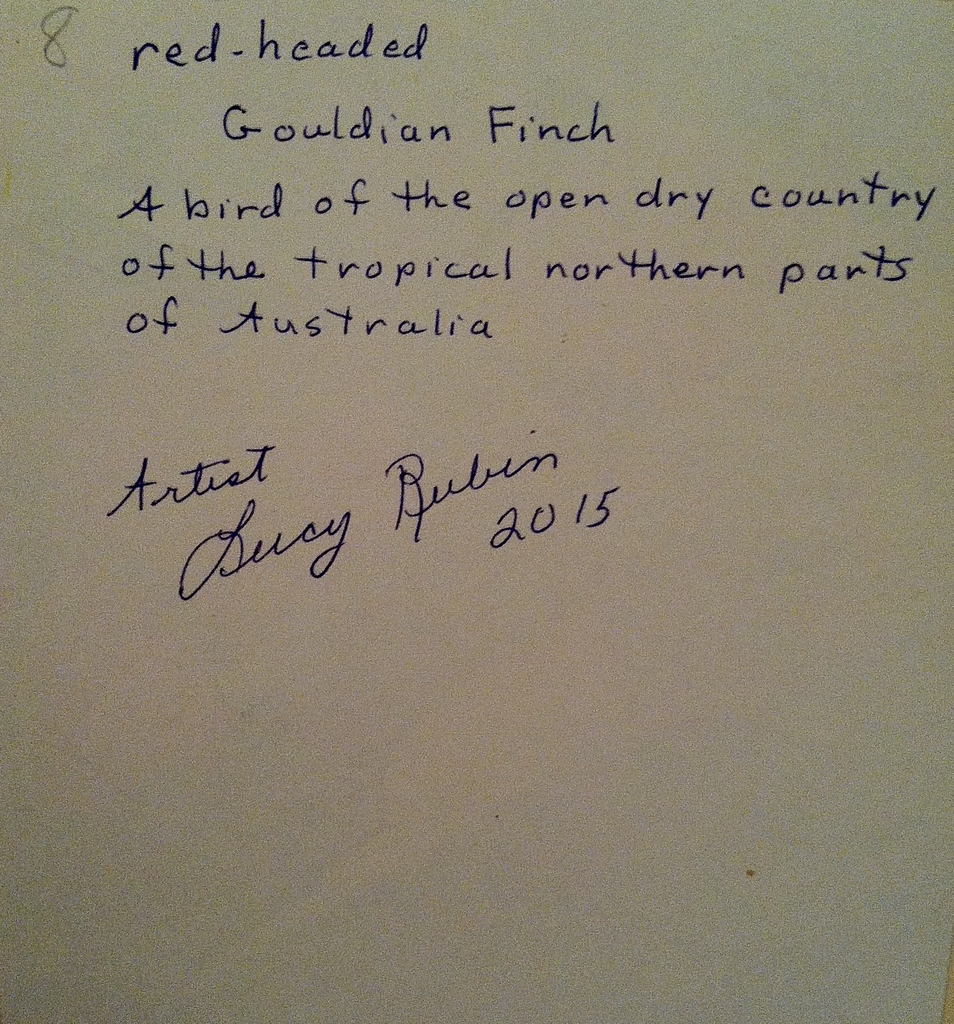 8 red-headed
Gouldian Finch
A bird of the open dry country
of the tropical northern parts
of Australia
Artist
Lucy Rubin
2015